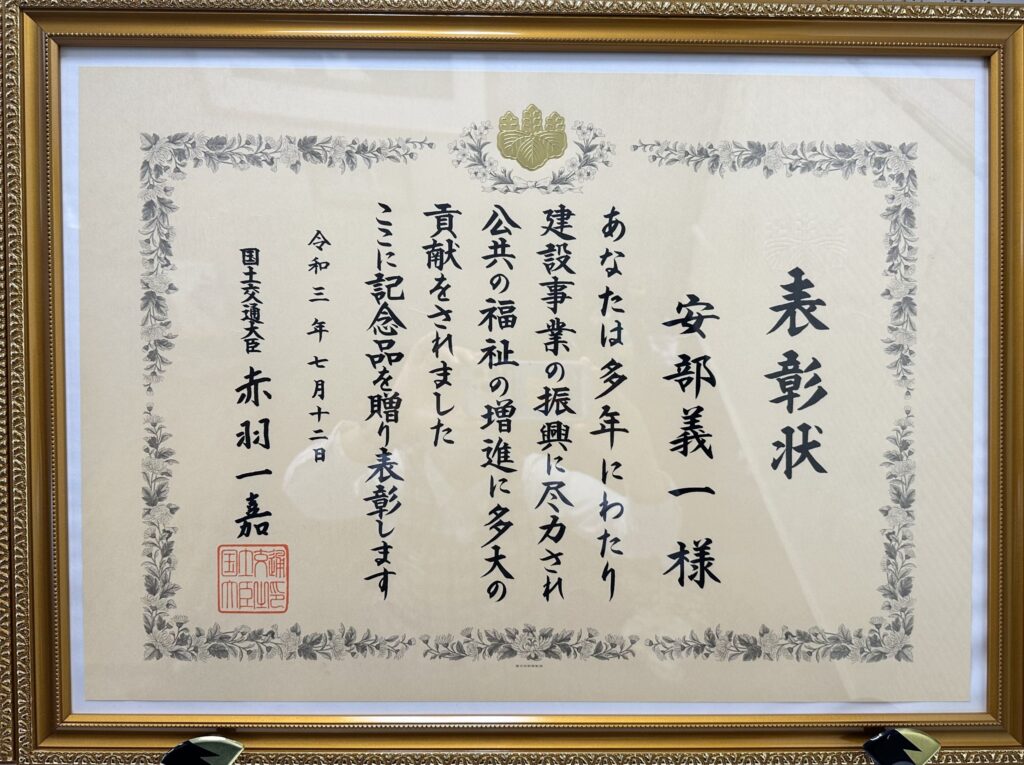 表彰状
安部義一様
あなたは多年にわたり
建設事業の振興に尽力され
公共の福祉の増進に多大の
貢献をされました
ここに記念品を贈り表彰します
令和三年七月十二日
国土交通大臣 赤羽一嘉
国土交通大臣之印